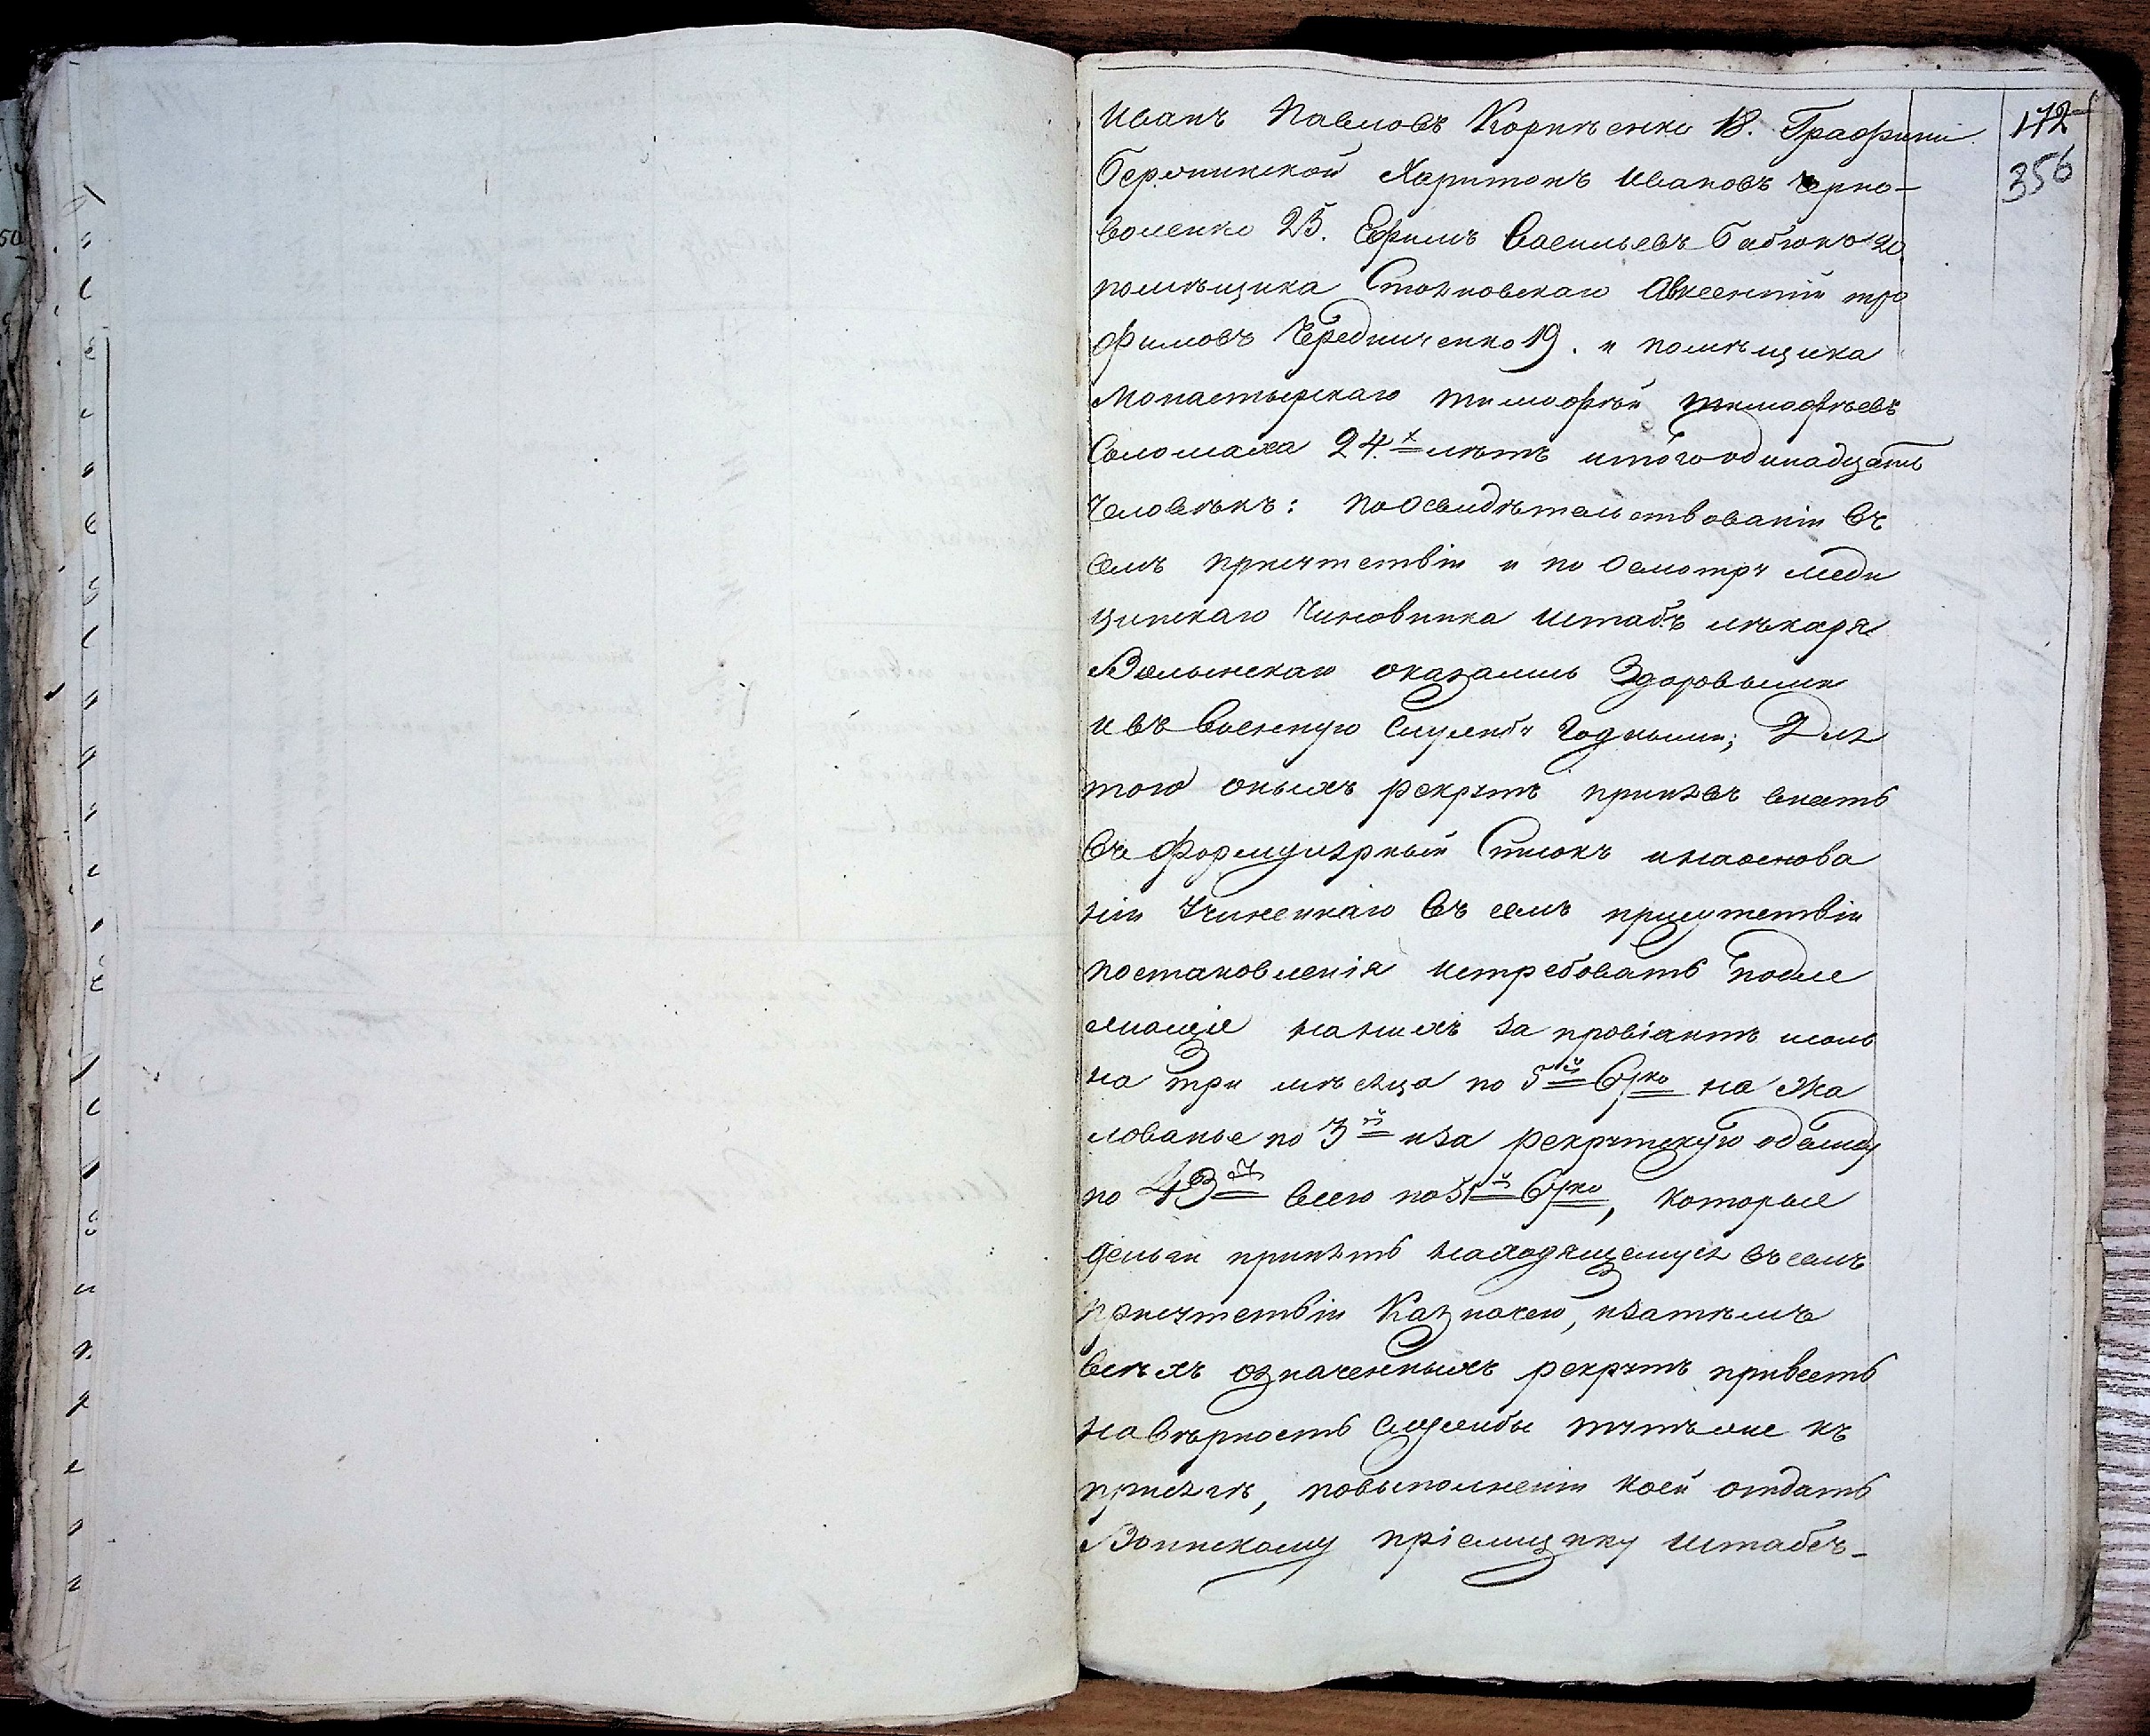 172
356
Иванъ Павловъ Корнѣенко 18. Графини
Бержинской Харитонъ Ивановъ Черно-
воленко 25. Ефимъ Васильевъ Бабюкъ 20.
помѣщика Стояновскаго Авксентій тро
фимовъ Чередниченко 19. и помѣщика
Монастырскаго тимофѣй тимофѣевъ
Соломаха 24.х лѣтъ итого одинадцать
Человѣкъ: по Освидѣтельствованіи въ
семъ присутствіи и по Осмотру меди
цинскаго Чиновника Штабъ лѣкаря
Волынскаго оказались Здоровыми
и въ Военную Службу Годными; Для
того оныхъ рекрутъ принявъ внесть
въ Формулярный Списокъ и на основа
ніи Учиненнаго въ семъ присутствіи
постановленія истребовать подле
жащіе на нихъ за провіантъ и соль
на три мѣсяца по 5й 67ко на Жа
лованье по 3й и за рекрутскую одежду
по 43й всего по 51й 67ко, которые
деньги принять находящемуся въ семъ
присутствіи Казначею, и затѣмъ
всѣхъ означенныхъ рекрутъ привесть
на вѣрность службы тутъ же къ
присягѣ, по выполненіи коей отдать
Воинскому пріемщику Штабсъ-